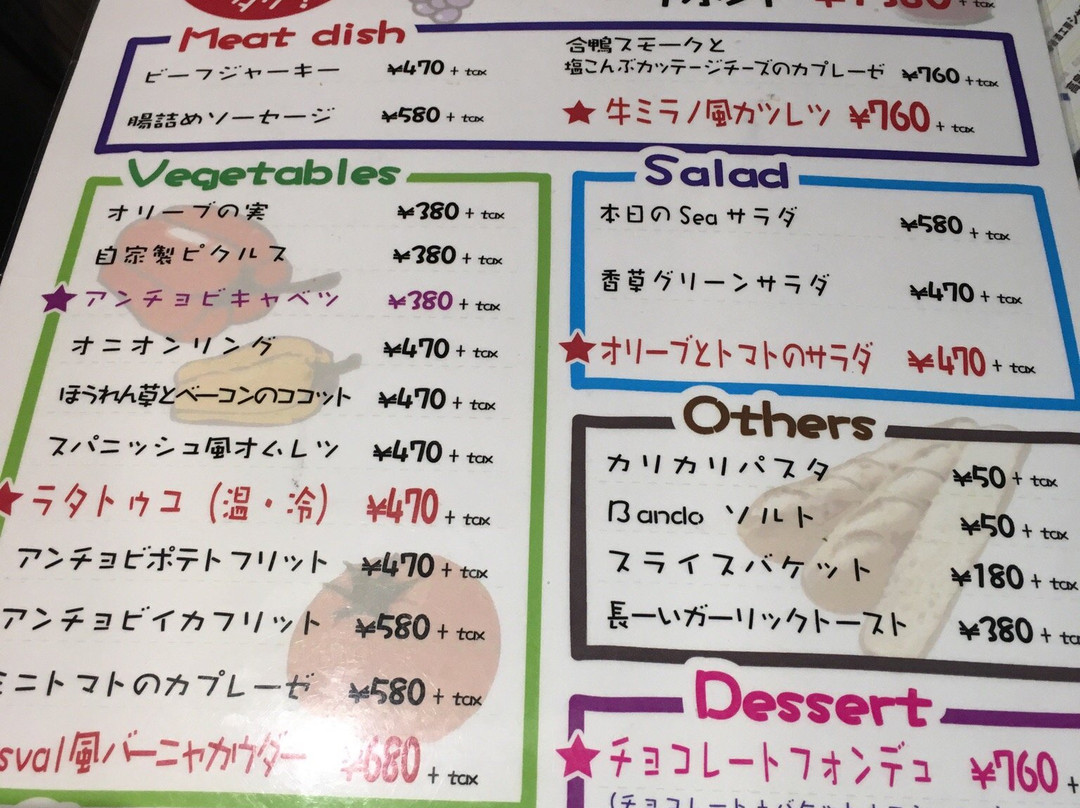 Meat dish
ビーフジャーキー ¥470 + tax
腸詰めソーセージ ¥580 + tax
合鴨スモークと
塩こんぶカッテージチーズのカプレーゼ ¥760 + tax
★牛ミラノ風カツレツ ¥760 + tax
Vegetables
オリーブの実 ¥380 + tax
自家製ピクルス ¥380 + tax
★アンチョビキャベツ ¥380 + tax
オニオンリング ¥470 + tax
ほうれん草とベーコンのココット ¥470 + tax
スパニッシュ風オムレツ ¥470 + tax
★ラタトゥユ (温・冷) ¥470 + tax
アンチョビポテトフリット ¥470 + tax
アンチョビイカフリット ¥580 + tax
ミニトマトのカプレーゼ ¥580 + tax
sval風バーニャカウダー ¥680 + tax
Salad
本日のSeaサラダ ¥580 + tax
香草グリーンサラダ ¥470 + tax
★オリーブとトマトのサラダ ¥470 + tax
Others
カリカリパスタ ¥50 + tax
Bando ソルト ¥50 + tax
スライスバケット ¥180 + tax
長ーいガーリックトースト ¥380 + ta
Dessert
★チョコレートフォンデュ ¥760 +